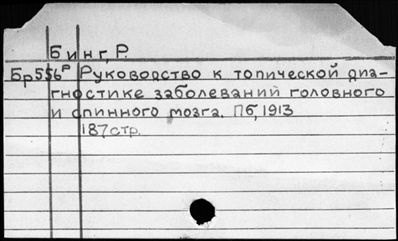 Бинг, Р.
Бр556ᴾ Руководство к топической диа-
гностике заболеваний головного
и спинного мозга. Пб, 1913
187 стр.